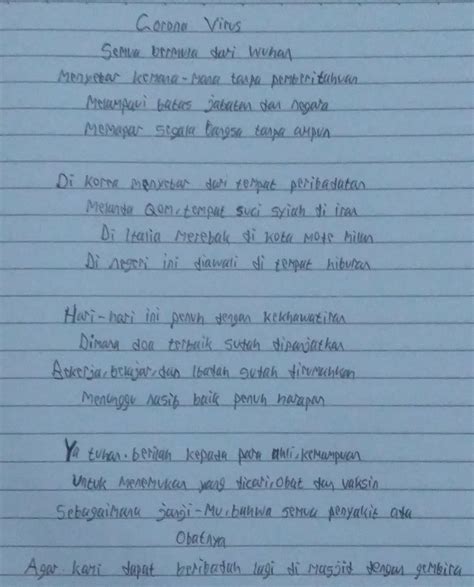 Corona Virus
Semua bermula dari wuhan
Menyebar kemana-mana tanpa pemberitahuan
Melampaui batas jabatan dan negara
Memapar segala bangsa tanpa ampun
Di korea menyebar dari tempat peribadatan
Melanda QOM, tempat suci syiah di iran
Di Italia merebak di kota mode milan
Di negeri ini diawali di tempat hiburan
Hari-hari ini penuh dengan kekhawatiran
Dimana doa terbaik sudah dipanjatkan
Bekerja, belajar, dan Ibadah sudah dirumahkan
Menunggu nasib baik penuh harapan
Ya tuhan. berilah kepada para ahli, kemampuan
Untuk menemukan yang dicari, obat dan vaksin
Sebagaimana janji-Mu, bahwa semua penyakit ada
Obatnya
Agar kami dapat beribadah lagi di masjid dengan gembira